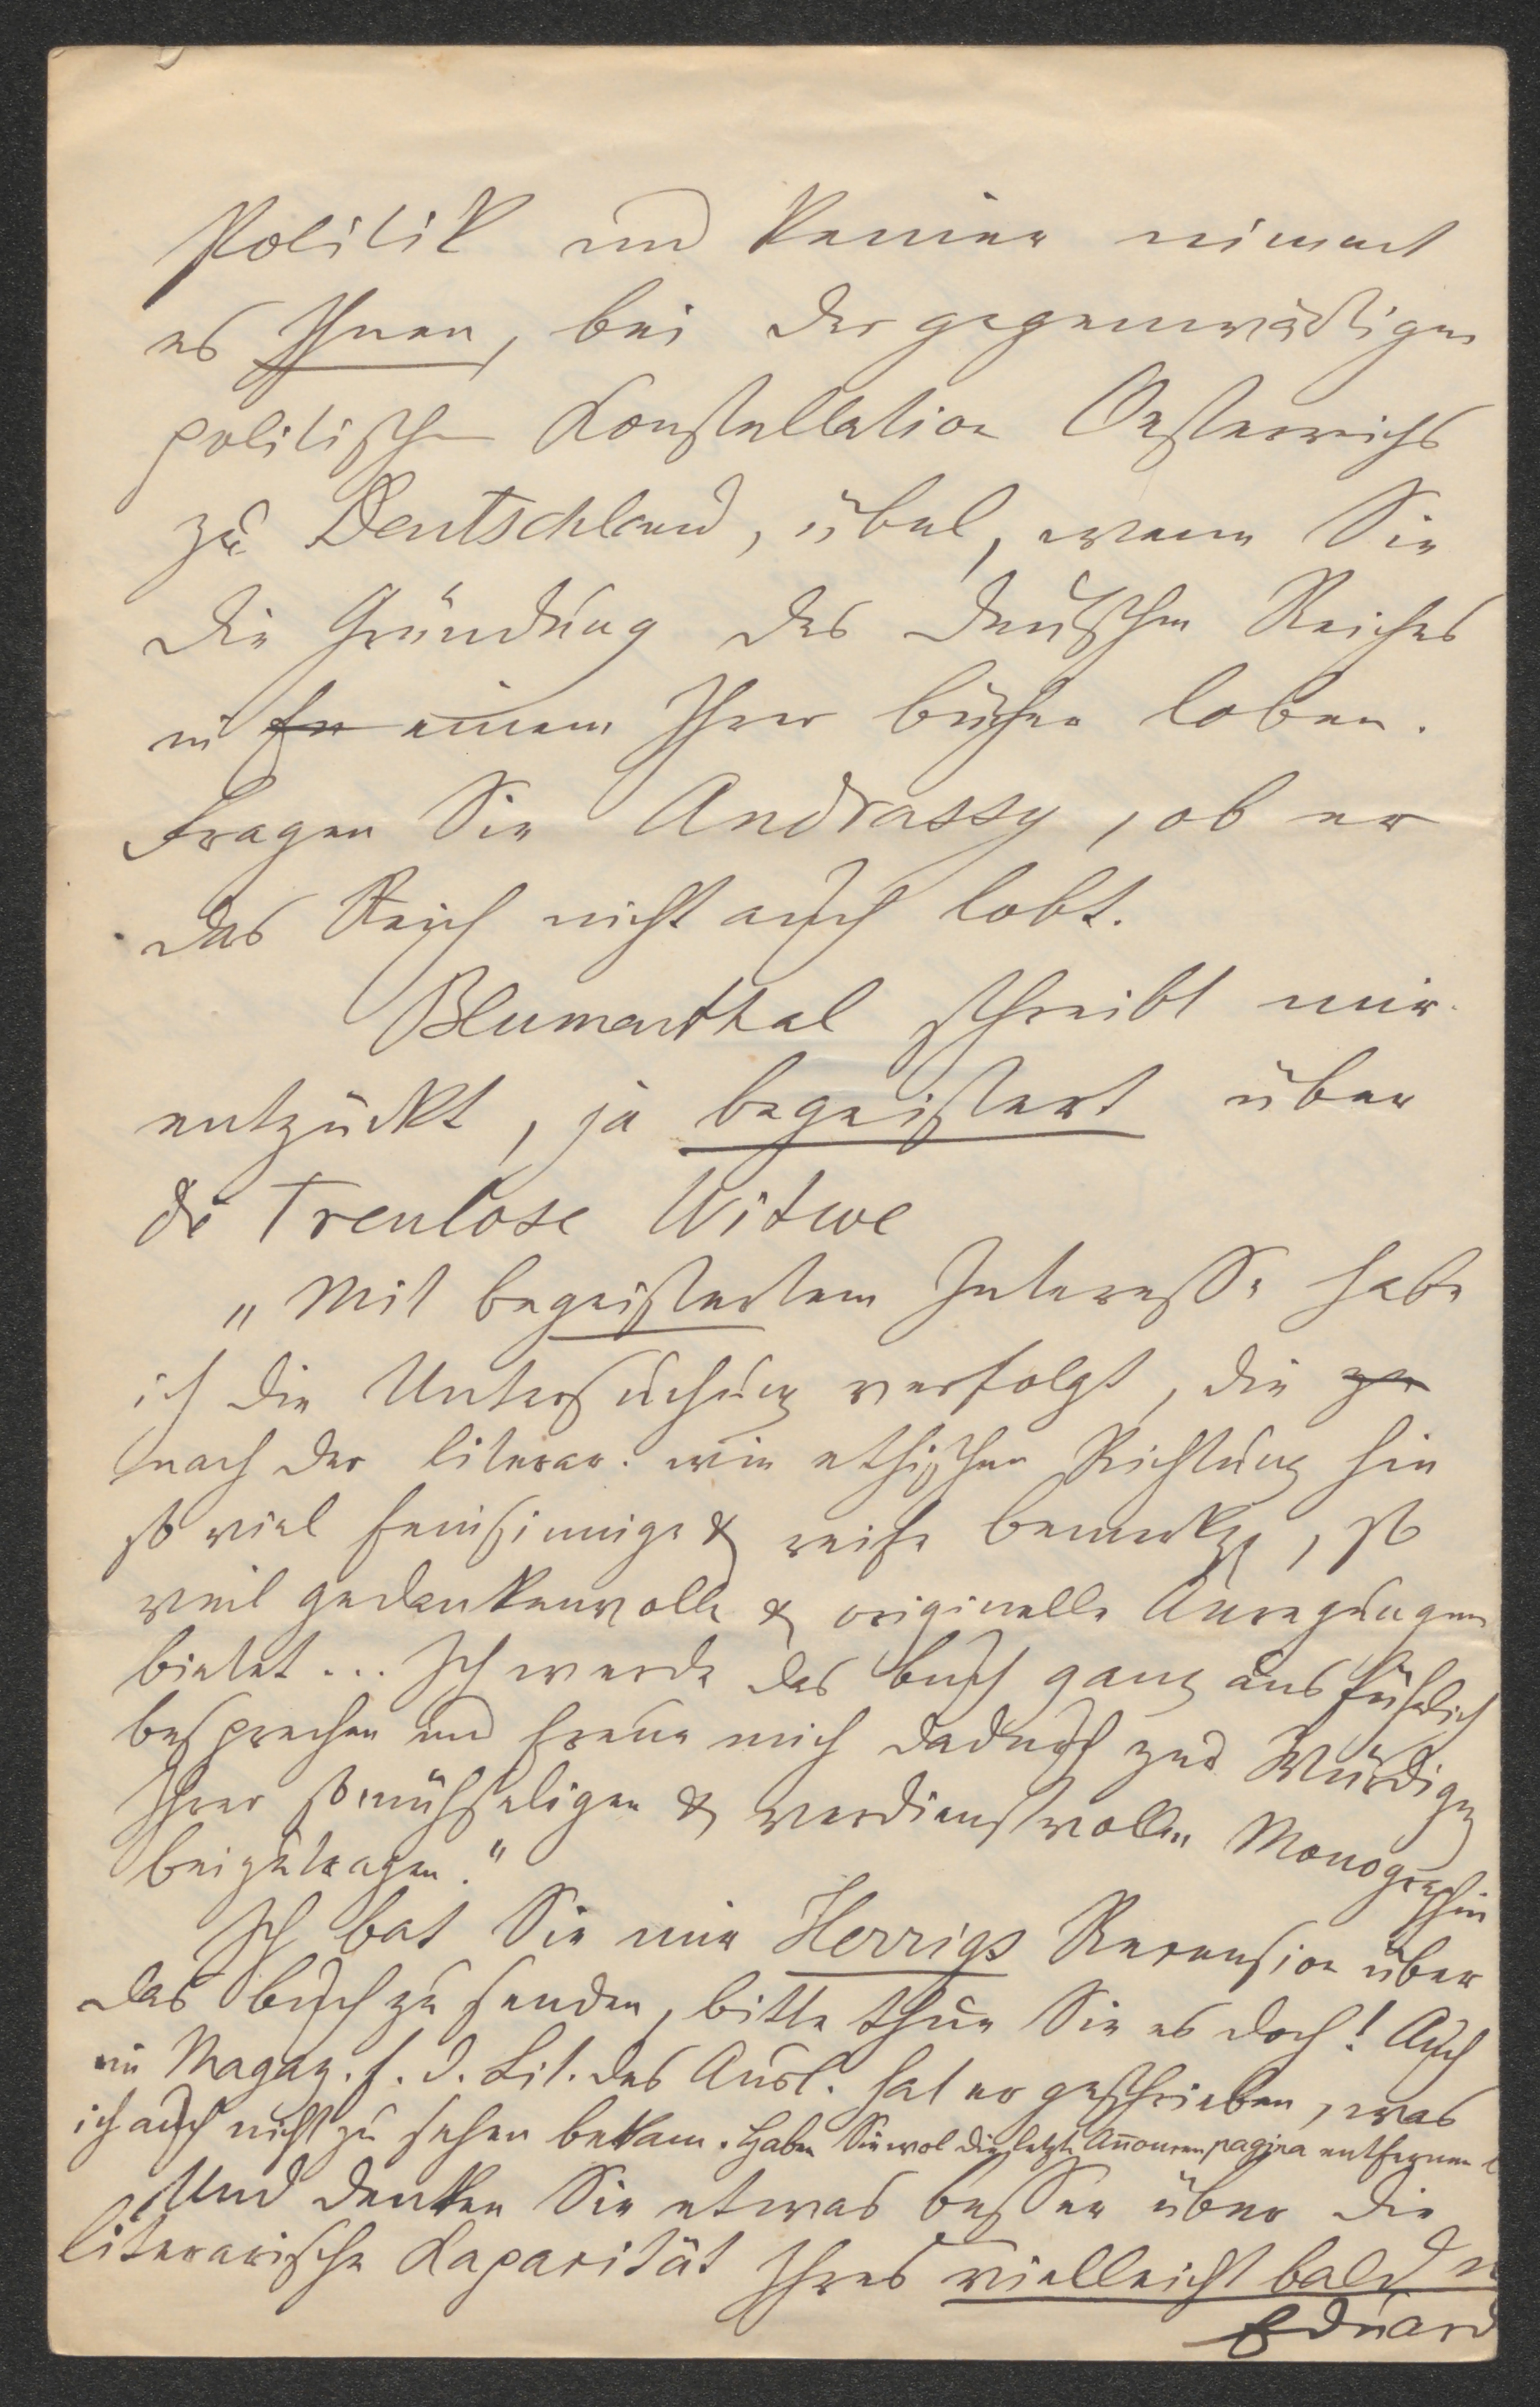 Politik und keiner nimmt
es Ihnen, bei der gegenwärtigen
politischen Konstellation Oesterreichs
zu Deutschland, übel, wenn Sie
die Gründung des deutschen Reiches
in einem Ihrer Bücher loben.
Fragen Sie Andrassy, ob er
das Reich nicht auch lobt.
Blumenthal schreibt mir
entzückt, ja begeistert über
die Treulose Witwe
„Mit begeistertem Interesse habe
ich die Untersuchung verfolgt, die
nach der literar. wie ethischen Richtung hin
so viel feinsinnige & reife , so
viel gedankenvolle & originelle Anregungen
bietet... Ich werde das Buch ganz ausführlich
besprechen und freue mich dadurch zur Würdigg
Ihrer so mühseligen & verdienstvollen Monographie
beizutragen."
Ich bat Sie mir Herrigs Recension über
das Buch zu senden, bitte thun Sie es doch! Auch
im Magaz. f. d. Lit. des Ausl. hat er geschrieben, was
ich auch nicht zu sehen bekam. Haben Sie wol die letzte Anoncenpagina entfernen
Und denken Sie etwas besser über die
literarische Kapacität Ihres vielleicht bald
Eduard